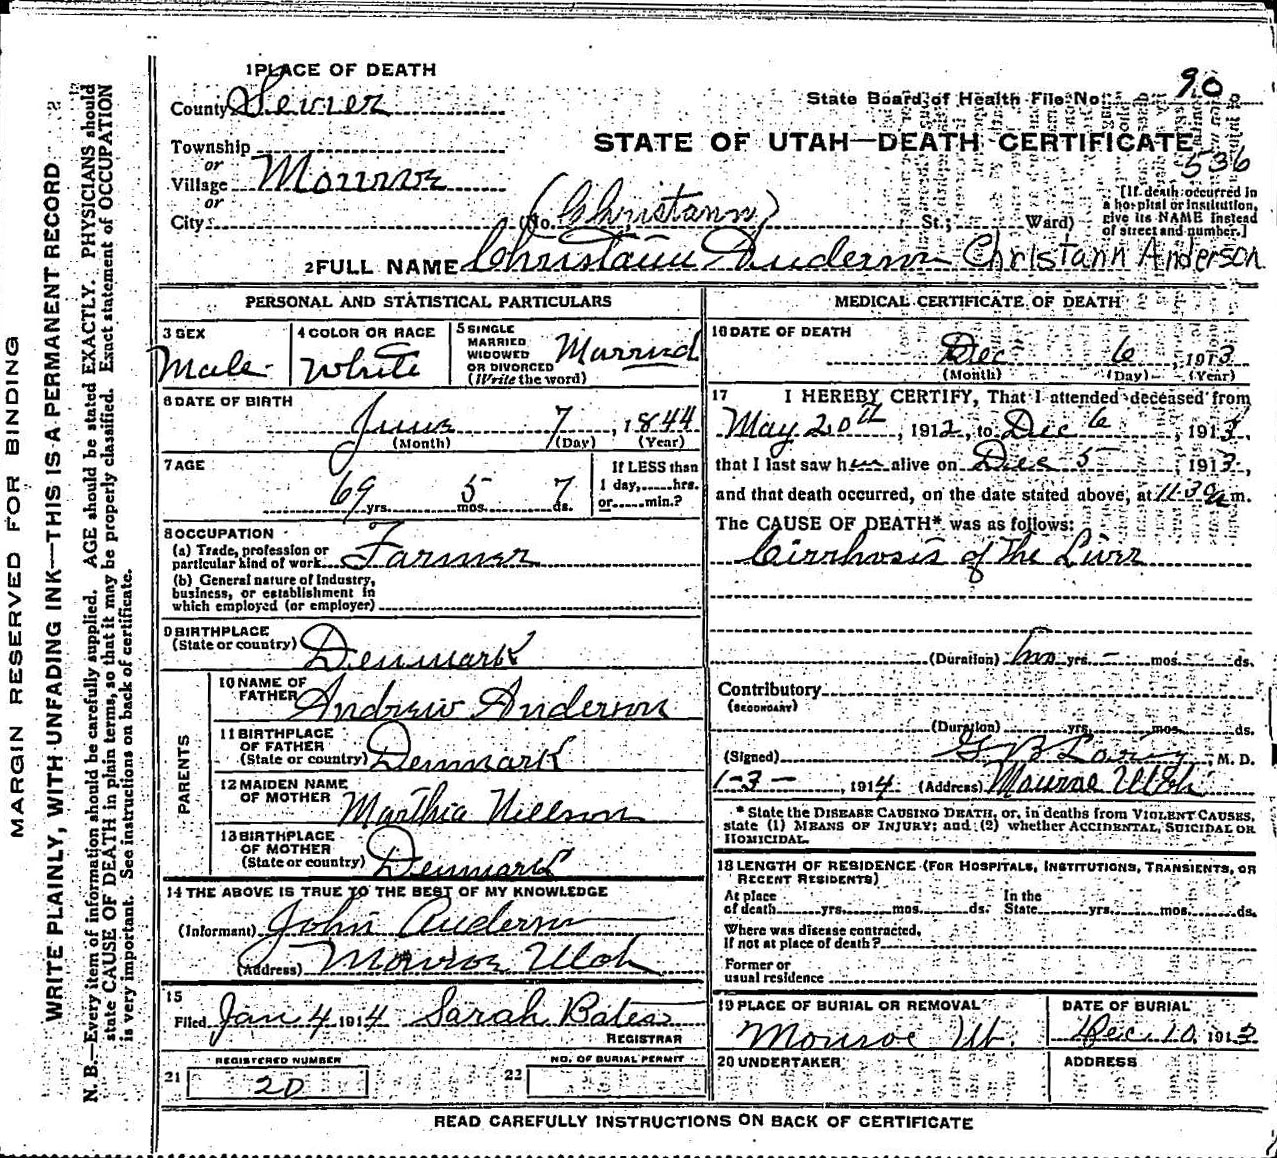 MARGIN RESERVED FOR BINDING
WRITE PLAINLY, WITH UNFADING INK—THIS IS A PERMANENT RECORD
N. B.—Every item of information should be carefully supplied. AGE should be stated EXACTLY. PHYSICIANS should
state CAUSE OF DEATH in plain terms, so that it may be properly classified. Exact statement of OCCUPATION
is very important. See instructions on back of certificate.
1 PLACE OF DEATH
County Sevier
State Board of Health File No. 90
Township
STATE OF UTAH—DEATH CERTIFICATE
536
or
Village Monroe
or
City (No. St.; Ward)
(Christann)
[If death occurred in
a hospital or institution,
give its NAME instead
of street and number.]
2 FULL NAME Christann Anderson Christann Anderson
PERSONAL AND STATISTICAL PARTICULARS
3 SEX
Male
4 COLOR OR RACE
White
5 SINGLE
MARRIED
WIDOWED
OR DIVORCED
(Write the word)
Married
6 DATE OF BIRTH
June 7, 1844
(Month) (Day) (Year)
7 AGE
69 yrs. 5 mos. 7 ds.
If LESS than
1 day,......hrs.
or......min.?
8 OCCUPATION
(a) Trade, profession or
particular kind of work Farmer
(b) General nature of industry,
business, or establishment in
which employed (or employer)
9 BIRTHPLACE
(State or country) Denmark
PARENTS
10 NAME OF
FATHER Andrew Anderson
11 BIRTHPLACE
OF FATHER
(State or country) Denmark
12 MAIDEN NAME
OF MOTHER Marthia Nielson
13 BIRTHPLACE
OF MOTHER
(State or country) Denmark
14 THE ABOVE IS TRUE TO THE BEST OF MY KNOWLEDGE
(Informant) John Anderson
(Address) Monroe Utah
15
Filed Jan 4 1914 Sarah Bates
REGISTRAR
REGISTERED NUMBER
21 20
NO. OF BURIAL PERMIT
22
MEDICAL CERTIFICATE OF DEATH
16 DATE OF DEATH
Dec 6, 1913
(Month) (Day) (Year)
17 I HEREBY CERTIFY, That I attended deceased from
May 20th, 1912, to Dec 6, 1913,
that I last saw him alive on Dec 5, 1913,
and that death occurred, on the date stated above, at 11:30 a m.
The CAUSE OF DEATH* was as follows:
Cirrhosis of the Liver
(Duration) yrs. - mos. ds.
Contributory
(SECONDARY)
(Duration) yrs. mos. ds.
(Signed) , M. D.
1-3-, 1914 (Address) Monroe Utah
* State the DISEASE CAUSING DEATH, or, in deaths from VIOLENT CAUSES,
state (1) MEANS OF INJURY; and (2) whether ACCIDENTAL, SUICIDAL OR
HOMICIDAL.
18 LENGTH OF RESIDENCE (FOR HOSPITALS, INSTITUTIONS, TRANSIENTS, OR
RECENT RESIDENTS)
At place In the
of death......yrs.......mos.......ds. State......yrs.......mos.......ds.
Where was disease contracted,
If not at place of death?
Former or
usual residence
19 PLACE OF BURIAL OR REMOVAL
Monroe Ut.
DATE OF BURIAL
Dec. 10, 1913
20 UNDERTAKER
ADDRESS
READ CAREFULLY INSTRUCTIONS ON BACK OF CERTIFICATE